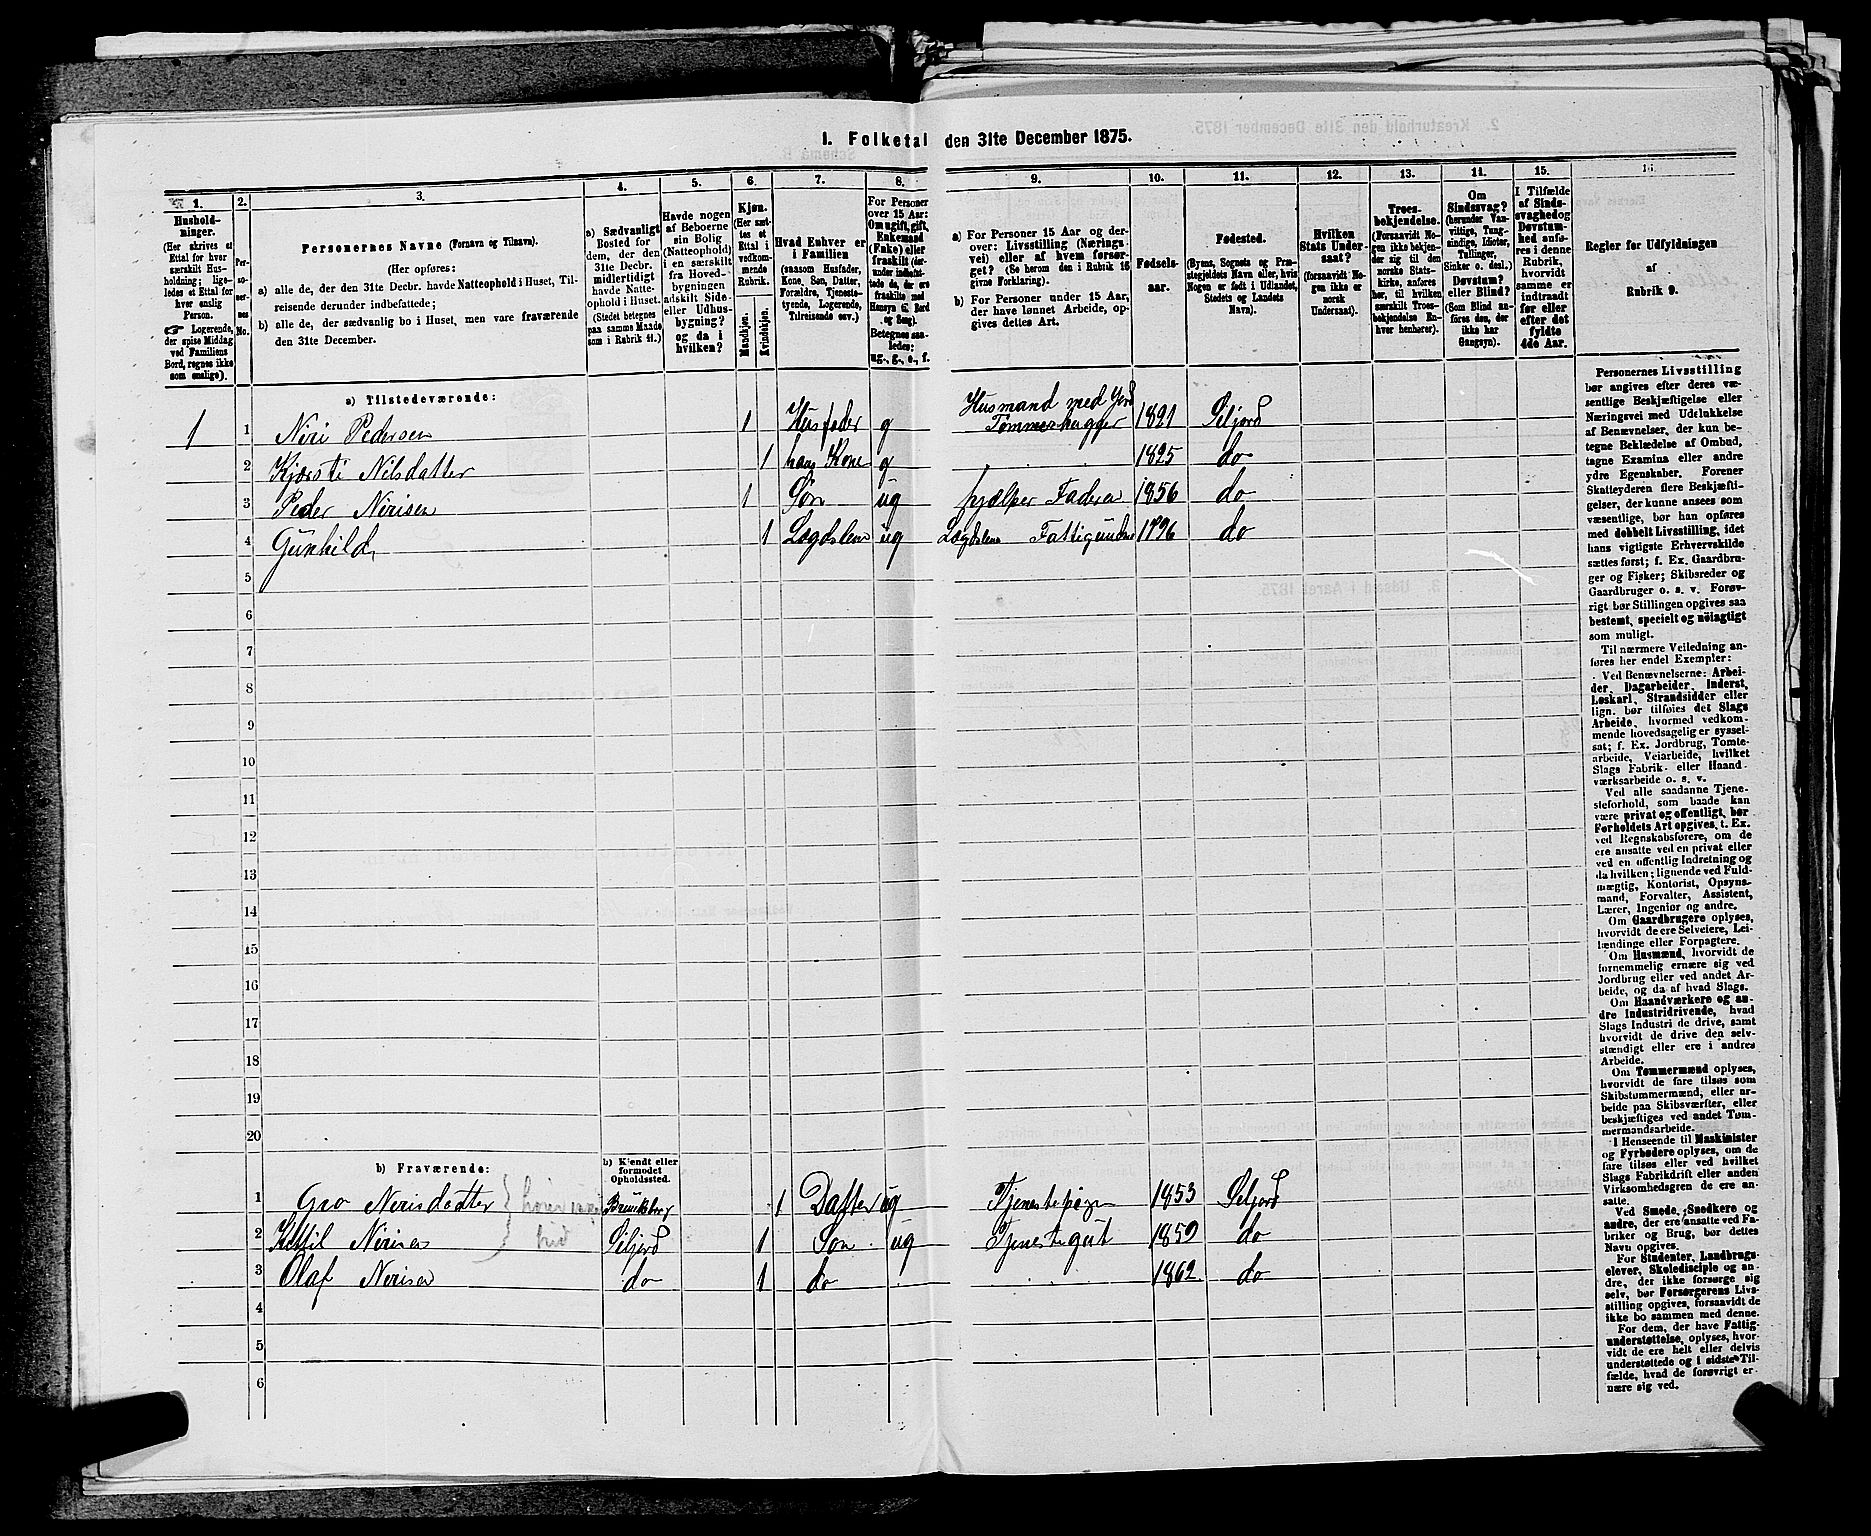 1. Folketal den 31te December 1875.
1. 2. 3. 4. 5. 6. 7. 8. 9. 10. 11. 12. 13. 14. 15. 16.
Hushold-
ninger.
(Her skrives et
Ettal for hver
særskilt Hus-
holdning; lige-
ledes et Ettal for
hver enslig
Person.
☞ Logerende,
der spise Middag
ved Familiens
Bord, regnes ikke
som enslige).
Per-
so-
ner-
nes
No.
Personernes Navne (Fornavn og Tilnavn).
(Her opføres:
a) alle de, der den 31te Decbr. havde Natteophold i Huset, Til-
reisende derunder indbefattede;
b) alle de, der sædvanlig bo i Huset, men vare fraværende
den 31te December.
a) Sædvanligt
Bosted for
dem, der den
31te Decbr.
midlertidigt
havde Natte-
ophold i Huset.
(Stedet betegnes
paa samme Maade
som i Rubrik 11.)
Havde nogen
af Beboerne
sin Bolig
(Natteophold)
i en særskilt
fra Hoved-
bygningen
adskilt Side-
eller Udhus-
bygning?
og da i
hvilken?
Kjøn.
(Her sæt-
tes et
Ettal i
vedkom-
mende
Rubrik.
Mandkjøn.
Kvindekjøn.
Hvad Enhver er
i Familien
(saasom Husfader,
Kone, Søn, Datter,
Forældre, Tjeneste-
tyende, Logerende,
Tilreisende osv.)
For Personer
over 15 Aar:
Om ugift, gift,
Enkemand
(Enke) eller
fraskilt (der-
under indbefat-
tede de, der ere
fraskilte med
Hensyn til Bord
og Seng).
Betegnes saa-
ledes:
ug., g., e., f.
a) For Personer 15 Aar og der-
over: Livsstilling (Nærings-
vei) eller af hvem forsør-
get? (Se herom den i Rubrik 16
givne Forklaring).
b) For Personer under 15 Aar,
der have lønnet Arbeide, op-
gives dettes Art.
Fødsels-
aar.
Fødested.
(Byens, Sognets og Præ-
stegjeldets Navn eller, hvis
Nogen er født i Udlandet,
Stedets og Landets
Navn).
Hvilken
Stats Under-
saat?
(forsaavidt No-
gen ikke er
norsk
Undersaat).
Troes-
bekjendelse.
(Forsaavidt No-
gen ikke bekjen-
der sig til den
norske Stats-
kirke, anføres
her, til hvilken
særskilt Troes-
bekjendelse En-
hver henhører).
Om
Sindssvag?
(herunder Van-
vittige, Tung-
sindige, Idioter,
Tullinger,
Sinker o. desl.)
Døvstum?
eller Blind?
(Som Blind an-
føres den, der
ikke har
Gangsyn).
I Tilfælde
af Sinds-
svaghed og
Døvstum-
hed anfø-
res i denne
Rubrik,
hvorvidt
samme er
indtraadt
før eller
efter det
fyldte
4de Aar.
Regler for Udfyldningen
af
Rubrik 9.
a) Tilstedeværende:
1 1 Niri Pedersen 1 Husfader g Husmand med Jord Tømmerhugger 1821 Siljord
2 Kjersti Nilsdatter 1 hans Kone g 1825 do
3 Peder Nirisen 1 Søn ug hjælper Faderen 1856 do
4 Gunhild 1 Lægdslem ug Lægdslem Fattigunders 1796 do
5
6
7
8
9
10
11
12
13
14
15
16
17
18
19
20
b) Fraværende:
b) Kjendt eller
formodet
Opholdssted.
1 Gro Nerisdatter 1 Datter ug Tjenestepige 1853 Siljord
2 Kittil Nirisen Siljord 1 Søn ug Tjenestegut 1859 do
3 Olaf Nerisen do 1 do 1862 do
4
5
6
Personernes Livsstilling
bør angives efter deres væ-
sentlige Beskjæftigelse eller
Næringsvei med Udelukkelse
af Benævnelser, der kun be-
tegne Beklædelse af Ombud,
tagne Examina eller andre
ydre Egenskaber. Forener
Skatteyderen flere Beskjæfti-
gelser, der kunne ansees som
væsentlige, bør han opføres
med dobbelt Livsstilling, idet
hans vigtigste Erhvervskilde
sættes først; f. Ex. Gaardbru-
ger og Fisker; Skibsreder og
Gaardbruger o. s. v. Forøv-
rigt bør Stillingen opgives saa
bestemt, specielt og nøiagtigt
som muligt.
Til nærmere Veiledning an-
føres her endel Exempler:
Ved Benævnelserne: Arbei-
der, Dagarbeider, Inderst,
Løskarl, Strandsidder eller
lign. bør tilføies det Slags
Arbeide, hvormed vedkom-
mende hovedsagelig er syssel-
sat; f. Ex. Jordbrug, Tomte-
arbeide, Veiarbeide, hvilket
Slags Fabrik- eller Haand-
værksarbeide o. s. v.
Ved alle saadanne Tjene-
steforhold, som baade kan
være privat og offentligt, bør
Forholdets Art opgives, t. Ex.
ved Regnskabsførere, om de
ere ansatte ved en privat eller
ved en offentlig Indretning og
da hvilken; lignende ved Fuld-
mægtig, Kontorist, Opsyns-
mand, Forvalter, Assistent,
Lærer, Ingeniør og andre.
Om Gaardbrugere oplyses,
hvorvidt de ere Selveiere, Lei-
lændinge eller Forpagtere.
Om Husmænd, hvorvidt de
fornemmelig ernære sig ved
Jordbrug eller ved andet Ar-
beide, og da af hvad Slags.
Om Haandværkere og an-
dre Industridrivende, hvad
Slags Industri de drive, samt
hvorvidt de drive den selv-
stændigt eller ere i andres
Arbeide.
Om Tømmermænd oplyses,
hvorvidt de fare tilsøs som
Skibstømmermænd, eller ar-
beide paa Skibsværfter, eller
beskjæftiges ved andet Tøm-
mermandsarbeide.
I Henseende til Maskinister
og Fyrbødere oplyses, om de
fare tilsøs eller ved hvilket
Slags Fabrikdrift eller anden
Virksomhedsgren de ere an-
satte.
Ved Smede, Snedkere og
andre, der ere ansatte ved Fa-
briker og Brug, bør dettes
Navn opgives.
For Studenter, Landbrugs-
elever, Skoledisciple og an-
dre, der ikke forsørge sig
selv, bør Forsørgerens Livs-
stilling opgives, forsaavidt de
ikke bo sammen med denne.
For dem, der have Fattig-
understøttelse, oplyses, hvor-
vidt de ere helt eller delvis
understøttede og i sidste Til-
fælde, hvad de forøvrigt er-
nære sig ved.